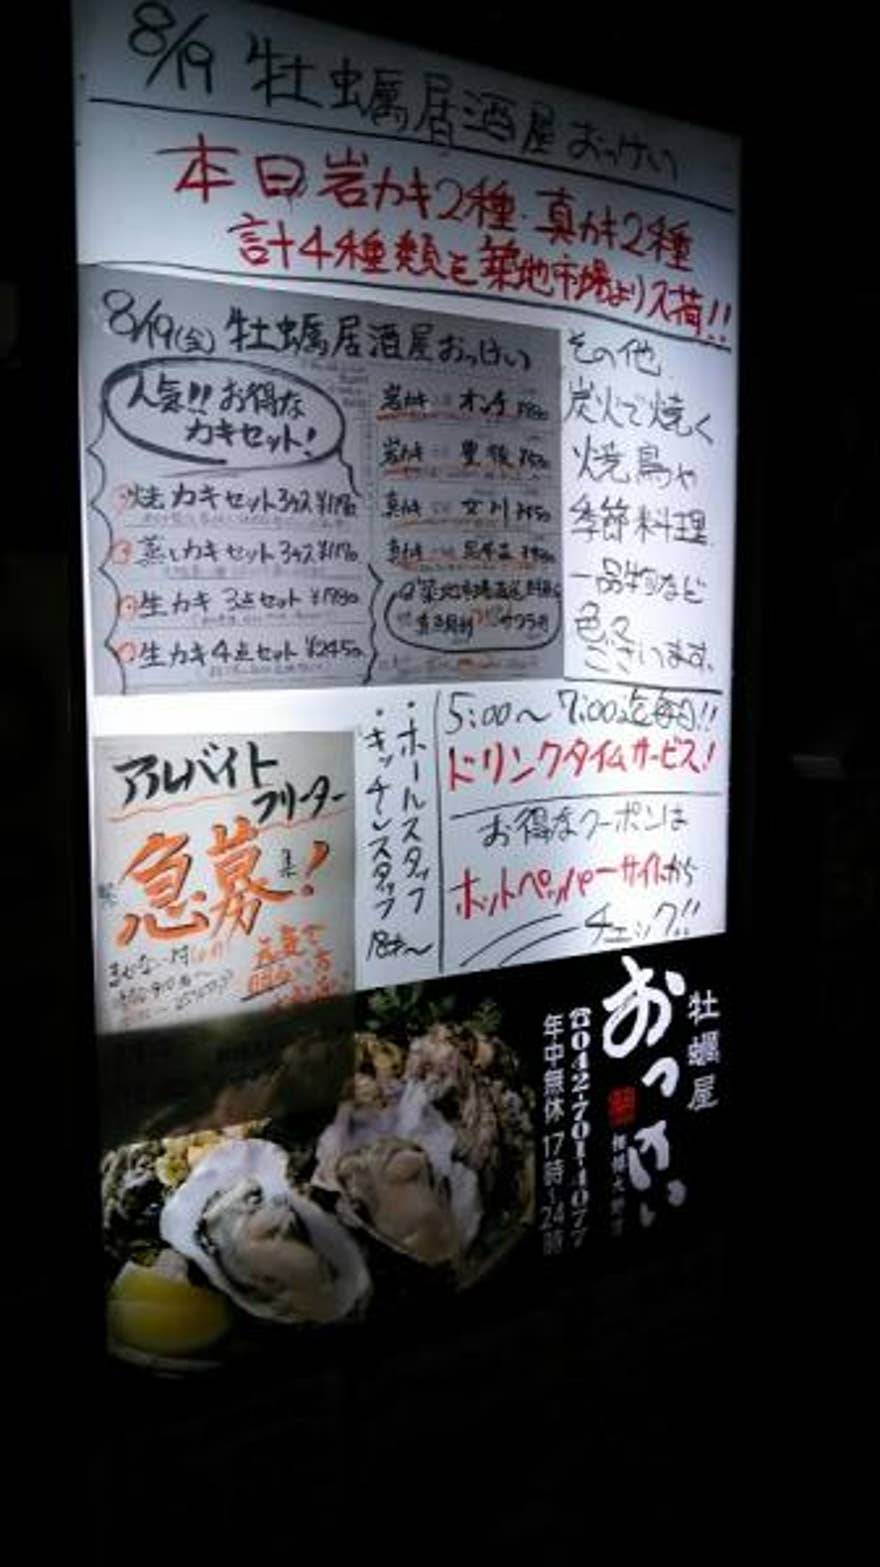 8/19 牡蠣居酒屋 おっけい
本日岩カキ2種・真カキ2種
計4種類を築地市場より入荷!!
8/19(金) 牡蠣居酒屋おっけい
人気!! お得な
カキセット!
焼カキセット3ケス ¥1190
蒸しカキセット3ケス ¥1190
生カキ 3点セット ¥1980
生カキ 4点セット ¥2450
岩カキ オンチ
岩カキ 豊後
真カキ 女川
真カキ
築地市場直送
その他
炭火で焼く
焼鳥や
季節料理
一品物など
色々
ございます。
アルバイト
フリーター
急募!
元気で
明るい方
・ホールスタッフ
・キッチンスタッフ
18才〜
5:00〜7:00迄毎日!!
ドリンクタイムサービス!
お得なクーポンは
ホットペッパーサイトから
チェック!!
牡蠣屋
おっけい
相模大野店
☎042-701-4077
年中無休 17時~24時